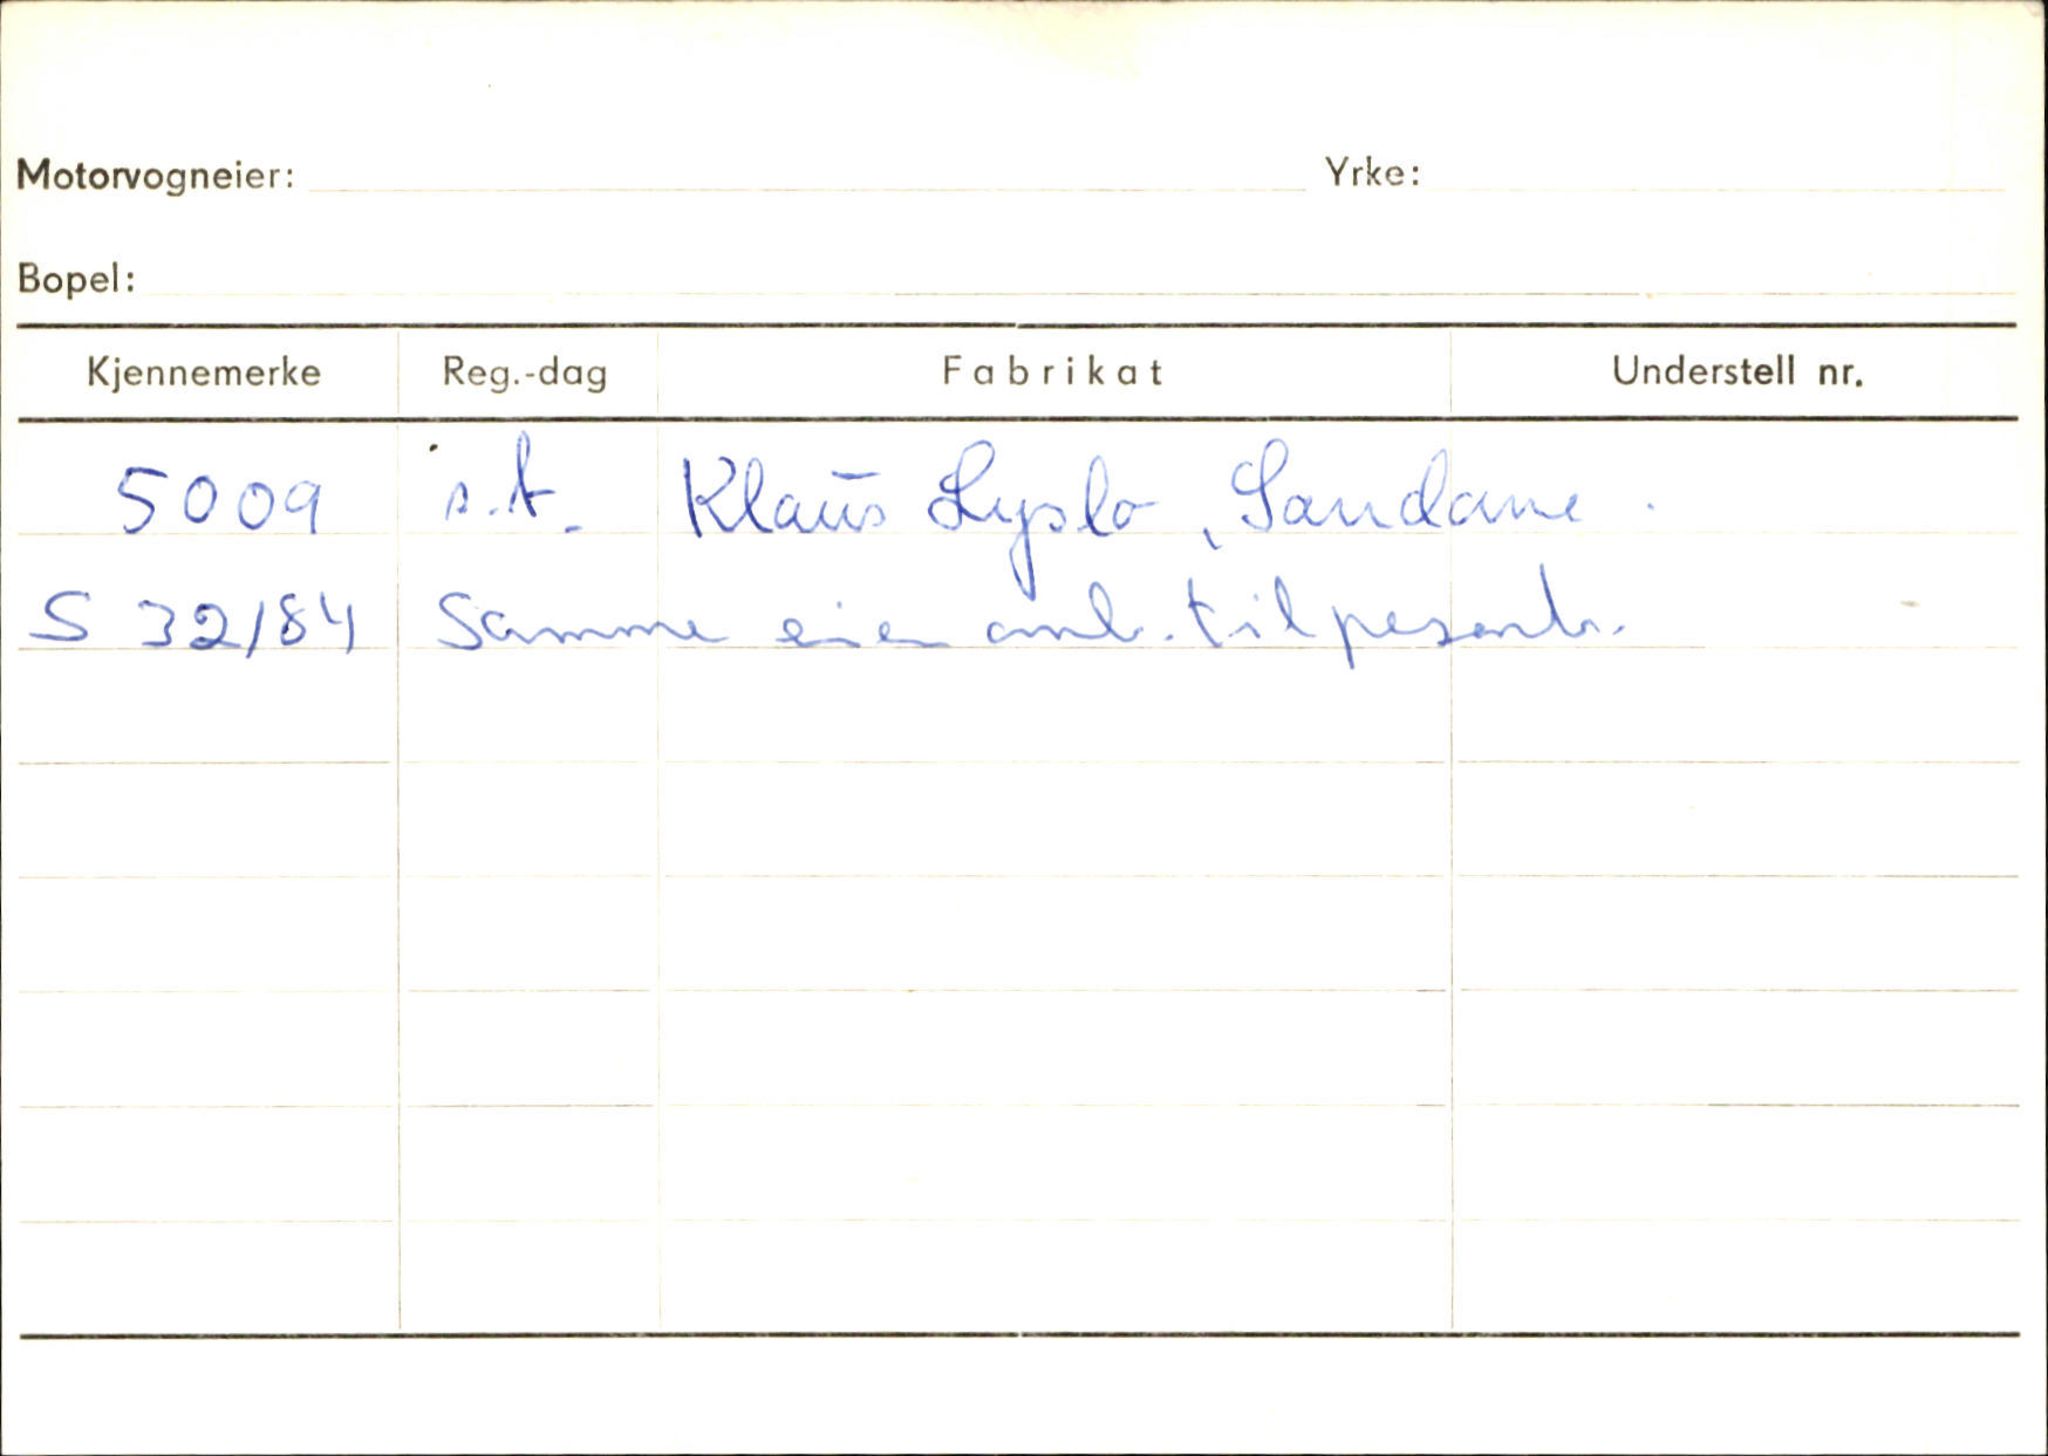 Motorvogneier: Yrke:
Bopel:
Kjennemerke Reg.-dag Fabrikat Understell nr.
5009 s.t. Klaus Lyslo, Sandane.
S 32/84 Samme eier omb. til pesonb.